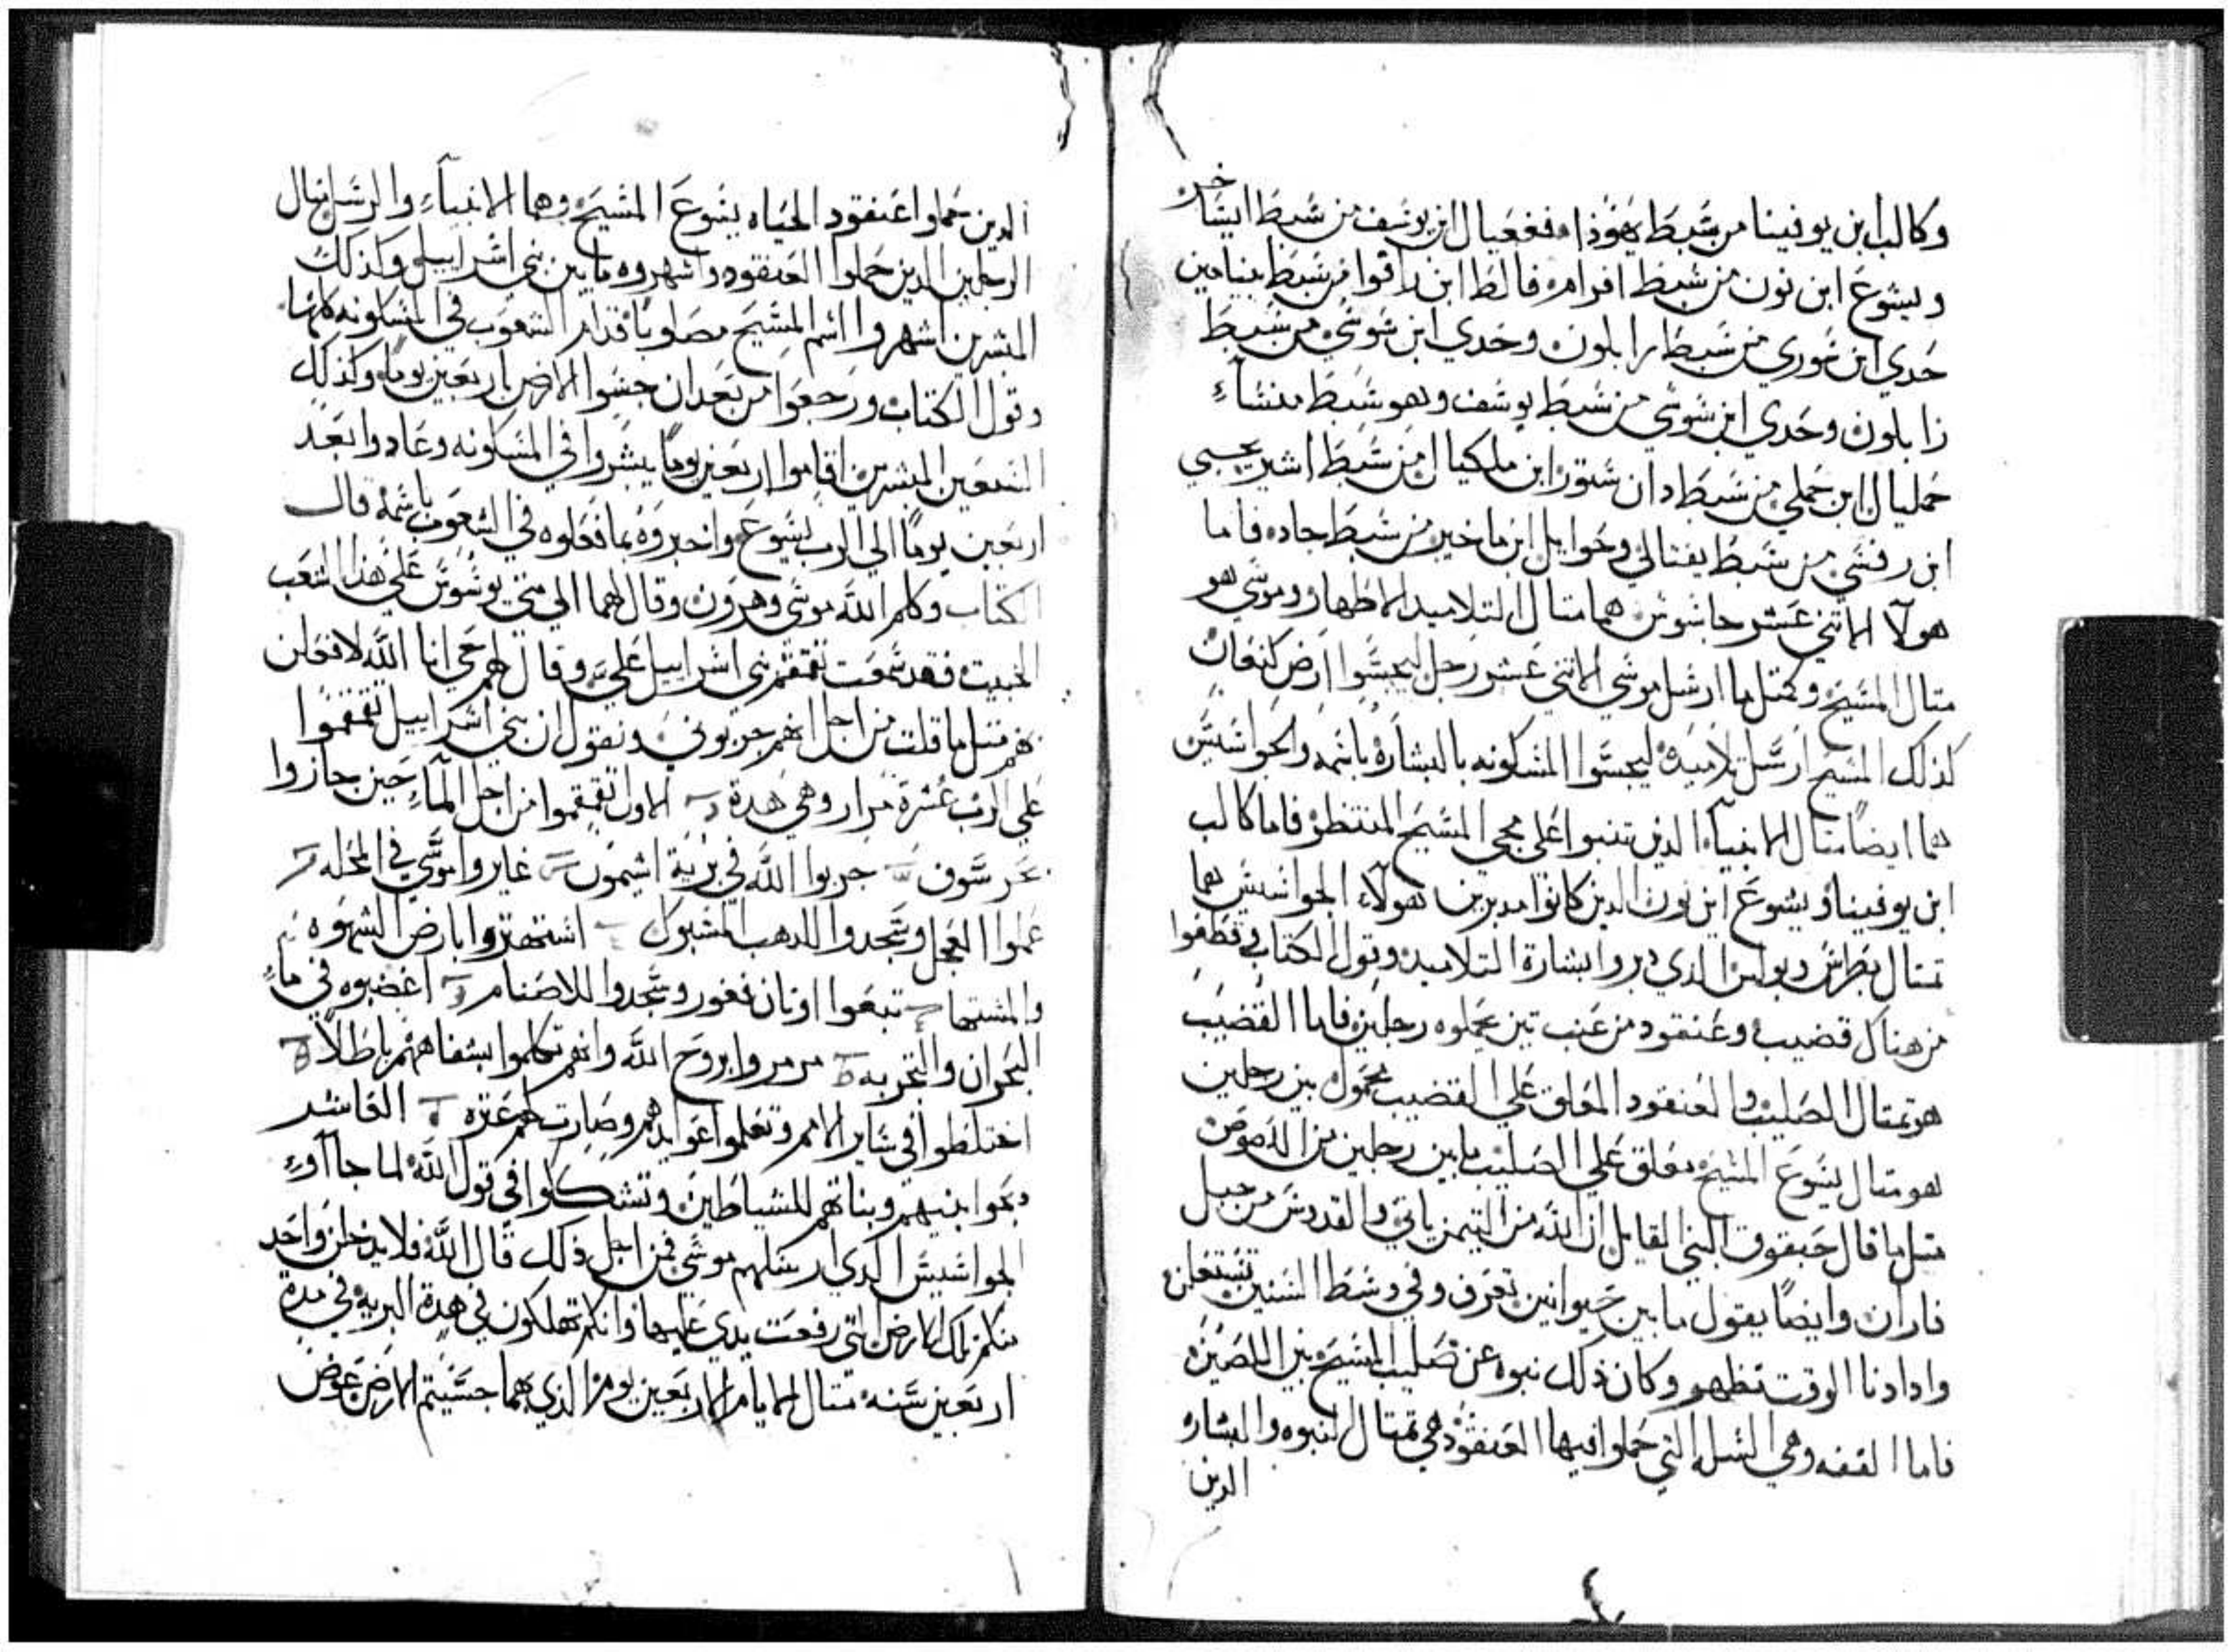 وكالب ابن يوفينا من شبط يهوذا ففعيال ابن يوسف من شبط ايساخر
ويشوع ابن نون من شبط افرام فالطا ابن رافوا من شبط بنيامين
حدي ابن شوري من شبط زابلون وحدي ابن شوشي من شبط
زابلون وحدي ابن شوشي من شبط يوسف وهو شبط منشاء
حمليال ابن حملي من شبط دان شتور ابن ملكيال من شبط اشير يحيي
ابن رفشي من شبط يفتالي وخوايل ابن ماخير من شبط جاد فاما
هولآ الاتني عشر جاشوش هما متال التلاميد الاطهار وموسي هو
متال المشيح وكمتل ما ارشل موسي الاتني عشر رجل ليجسوا ارض كنعان
كذلك المشيح ارسل تلاميده ليجسوا المسكونه بالبشارة باسمه والجواشيش
هما ايضا متال الانبياء الذين تنبوا على مجي المسيح المنتظر فاما كالب
ابن يوفينا ويشوع ابن نون الدين كانوا مدبرين لهولآء الجواشيش هما
تمتال بطرس وبولس الدي دبروا بشارة التلاميد وقول الكتاب قطفوا
من هناك قضيب وعنقود من عنب تين يحملوه رجلين فاما القضيب
هو تمتال الصليب والعنقود المعلق على القضيب محمول بين رجلين
هو متال يشوع المشيح معلق على الصليب مابين رجلين من اللصوص
متل ما قال حبقوق النبي القايل ان الله من التيمن ياتي والقدوس من جبل
فاران وايضا يقول ما بين حيوانين تعرف وفي وسط السنين تستعلن
وادا دنا الوقت تظهر وكان ذلك نبوه عن تصليب المشيح بين اللصين
فاما القفه وهي السله التي حملوا فيها العنقود هي تمتال النبوه والبشاره
الدين
الدين حملوا عنقود الحياه يشوع المشيح وهما الانبياء والرسل متال
الرجلين الدين حملوا العنقود واشهروه ما بين بني اشراييل وكذلك
المبشرين اشهروا اسم المشيح مصلوبا قدام الشعوب في المسكونه كلها
وقول الكتاب ورجعوا من بعد ان جسوا الارض باربعين يوما وكذلك
السبعين المبشرين اقاموا اربعين يوما يبشروا في المسكونه وعادوا بعد
اربعين يوما الي الرب يشوع واخبروه بما فعلوه في الشعوب باسمه قال
الكتاب وكلم الله موسي وهرون وقال لهما الي متي يوسوس على هذا الشعب
الخبيت فقد سمعت تقمقم بني اشراييل علي وقال لهم حي انا الله لافعلن
بهم متل ما قلت من اجل انهم جربوني ونقول ان بني اشراييل تقمقموا
على الرب عشرة مرار وهي هدة الاول تقمقموا من اجل المآء حين جازوا
بحر سوف جربوا الله في برية اشيمون غايروا موسي في المحله
عملوا العجل وسجدوا للدهب المسبوك استهتروا بارض الشهوه
والمشتها تبعوا اوتان فغور وسجدوا للاصنام اغضبوه في مآء
البحران والتجربه مرمروا بروح الله وانهم تكلموا بشفاههم باطلا
اختلطوا في ساير الامم وتعلموا عوايدهم وصارت لهم عتره العاشر
دبحوا بنيهم وبناتهم للشياطين وتشككوا في قول الله لما جاآوء
الجواشيش الدي ارسلهم موسي فمن اجل ذلك قال الله فلا يدخلن واحد
منكم تلك الارض التي رفعت يدي عليها وانكم تهلكون في هدة البريه في مدة
اربعين سنه متال الايام الاربعين يوم الذي بهما جسيتم الارض عوض